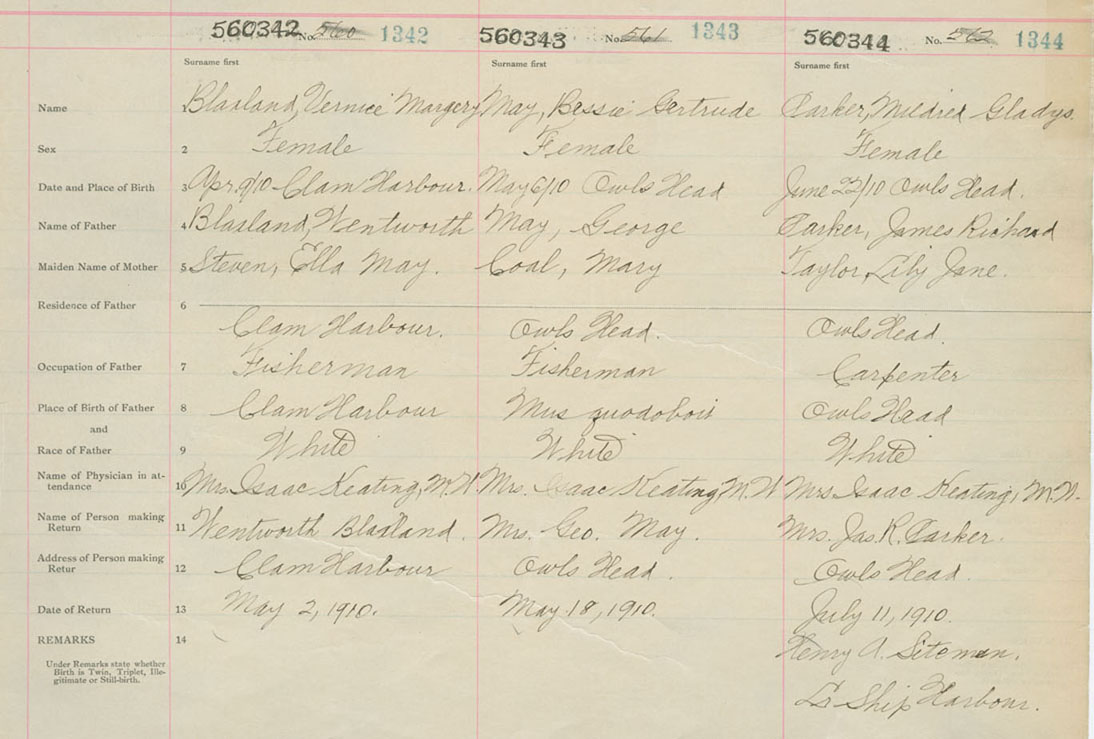 560342 No. 560 1342 560343 No. 561 1343 560344 No. 562 1344
Surname first Surname first Surname first
Name Blakland, Vernice Margery May, Bessie Gertrude Parker, Mildred Gladys.
Sex 2 Female Female Female
Date and Place of Birth 3 Apr. 9/10 Clam Harbour. May 6/10 Owls Head June 22/10 Owls Head.
Name of Father 4 Blakland, Wentworth May, George Parker, James Richard
Maiden Name of Mother 5 Steven, Ella May. Coal, Mary Taylor, Lily Jane.
Residence of Father 6
Clam Harbour. Owls Head. Owls Head.
Occupation of Father 7 Fisherman Fisherman Carpenter
Place of Birth of Father 8 Clam Harbour Mus quodoboit Owls Head
and
Race of Father 9 White White White
Name of Physician in at-
tendance 10 Mrs. Isaac Keating, M.W. Mrs. Isaac Keating M.W Mrs Isaac Keating, M.W.
Name of Person making
Return 11 Wentworth Blakland. Mrs. Geo. May. Mrs. Jas. R. Parker.
Address of Person making
Retur 12 Clam Harbour Owls Head. Owls Head.
Date of Return 13 May 2, 1910. May 18, 1910. July 11, 1910.
REMARKS 14 Henry A. Siteman.
Under Remarks state whether
Birth is Twin, Triplet, Ille-
gitimate or Still-birth.
Ship Harbour.